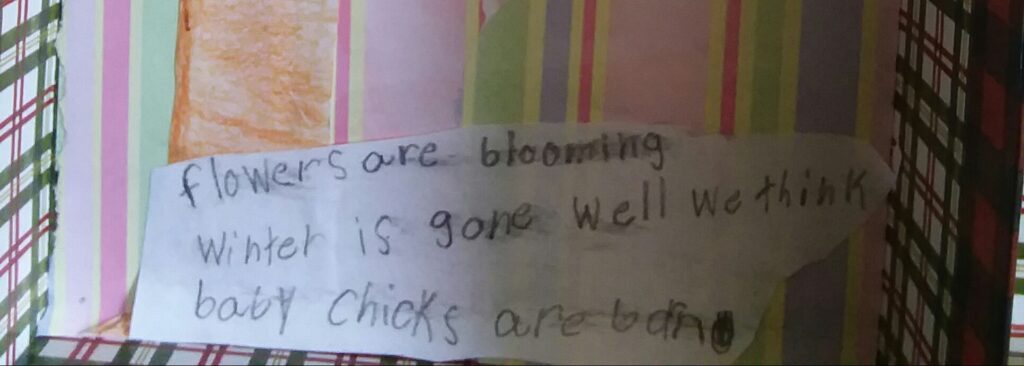 flowers are blooming
Winter is gone Well We think
baby Chicks are born